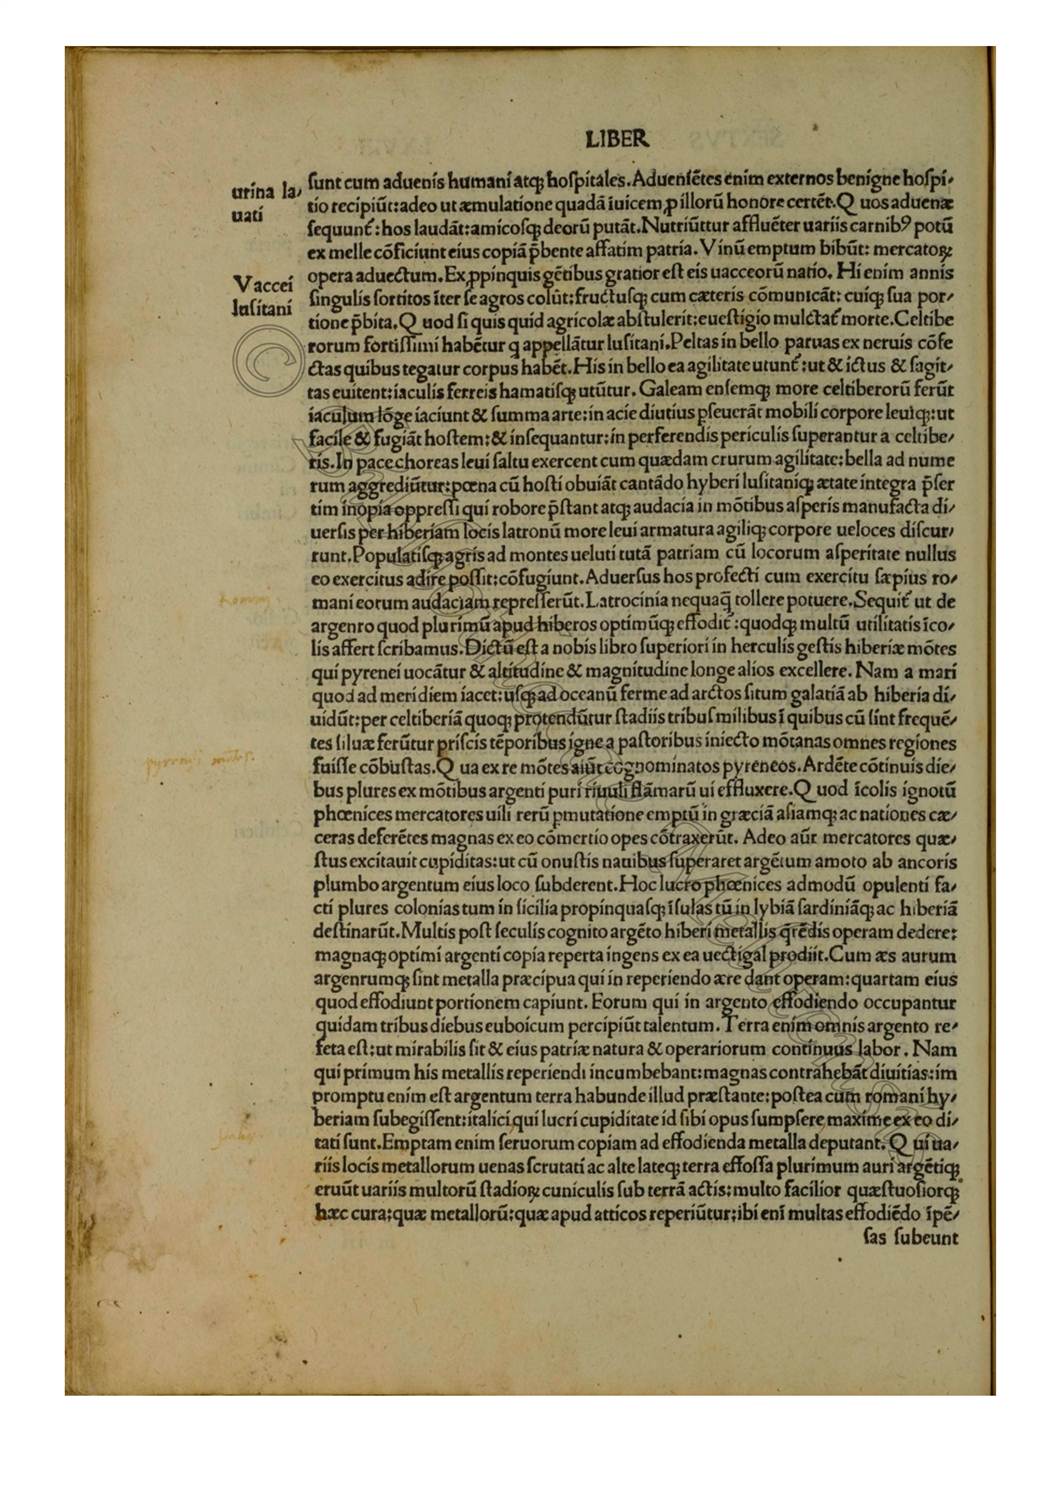 LIBER
urina la/
uati
Vaccei
lusitani
ſunt cum aduenis humani atq; hoſpitales. Aduenſētes enim externos benigne hoſpi/
tio recipiūt: adeo ut æmulatione quadā īuicem, ꝓ illorū honore certēt. Q uos aduenæ
ſequunt᷑: hos laudāt: amicoſq; deorū putāt. Nutriūttur affluēter uariis carnibꝰ potū
ex melle cōficiunt eius copiā p̄bente affatim patria. Vinū emptum bibūt: mercatoꝝ
opera aduectum. Ex ꝓpinquis gētibus gratior eſt eis uacceorū natio. Hi enim annis
ſingulis ſortitos īter ſe agros colūt: fructuſq; cum cæteris cōmunicāt: cuiq; ſua por/
tione p̄bita. Q uod ſi quis quid agricolæ abſtulerit: eueſtigio mulctat᷑ morte. Celtibe
rorum fortiſſimi habētur q appellātur luſitani. Peltas in bello paruas ex neruis cōfe
ctas quibus tegatur corpus habēt. His in bello ea agilitate utunt᷑: ut & ictus & ſagit/
tas euitent: iaculis ferreis hamatiſq; utūtur. Galeam enſemq; more celtiberorū ferūt
iaculum lōge iaciunt & ſumma arte: in acie diutius pſeuerāt mobili corpore leuiq;: ut
facile & fugiāt hoſtem: & inſequantur: in perferendis periculis ſuperantur a celtibe/
ris. In pace choreas leui ſaltu exercent cum quædam crurum agilitate: bella ad nume
rum aggrediūtur: pœna cū hoſti obuiāt cantādo hyberi luſitaniq; ætate integra p̄ſer
tim inopia oppreſſi qui robore p̄ſtant atq; audacia in mōtibus aſperis manufacta di/
uerſis per hiberiam locis latronū more leui armatura agiliq; corpore ueloces diſcur/
runt. Populatiſq; agris ad montes ueluti tutā patriam cū locorum aſperitate nullus
eo exercitus adire poſſit: cōfugiunt. Aduerſus hos profecti cum exercitu ſæpius ro/
mani eorum audaciam repreſſerūt. Latrocinia nequaq̄ tollere potuere. Sequit᷑ ut de
argenro quod plurimū apud hiberos optimūq; effodit᷑: quodq; multū utilitatis īco/
lis affert ſcribamus. Dictū eſt a nobis libro ſuperiori in herculis geſtis hiberiæ mōtes
qui pyrenei uocātur & altitudine & magnitudine longe alios excellere. Nam a mari
quod ad meridiem iacet: uſq; ad oceanū ferme ad arctos ſitum galatiā ab hiberia di/
uidūt: per celtiberiā quoq; protendūtur ſtadiis tribuſ milibus ī quibus cū ſint frequē/
tes ſiluæ ferūtur priſcis tēporibus igne a paſtoribus iniecto mōtanas omnes regiones
fuiſſe cōbuſtas. Q ua ex re mōtes aiūt cognominatos pyreneos. Ardēte cōtinuis die/
bus plures ex mōtibus argenti puri riuuli flāmarū ui effluxere. Q uod īcolis ignotū
phœnices mercatores uili rerū pmutatione emptū in græciā aſiamq; ac nationes cæ/
ceras deferētes magnas ex eo cōmertio opes cōtraxerūt. Adeo aūt mercatores quæ/
ſtus excitauit cupiditas: ut cū onuſtis nauibus ſuperaret argētum amoto ab ancoris
plumbo argentum eius loco ſubderent. Hoc lucro phœnices admodū opulenti fa/
cti plures colonias tum in ſicilia propinquaſq; īſulas tū in lybiā ſardiniāq; ac hiberiā
deſtinarūt. Multis poſt ſeculis cognito argēto hiberi metallis q̄rēdis operam dedere:
magnaq; optimi argenti copia reperta ingens ex ea uectigal prodiit. Cum æs aurum
argenrumq; ſint metalla præcipua qui in reperiendo ære dant operam: quartam eius
quod effodiunt portionem capiunt. Eorum qui in argento effodiendo occupantur
quidam tribus diebus euboicum percipiūt talentum. Terra enim omnis argento re/
feta eſt: ut mirabilis ſit & eius patriæ natura & operariorum continuus labor. Nam
qui primum his metallis reperiendi incumbebant: magnas contrahebāt diuitias: im
promptu enim eſt argentum terra habunde illud præſtante: poſtea cum romani hy/
beriam ſubegiſſent: italici qui lucri cupiditate id ſibi opus ſumpſere maxime ex eo di/
tati ſunt. Emptam enim ſeruorum copiam ad effodienda metalla deputant. Q ui ua/
riis locis metallorum uenas ſcrutati ac alte lateq; terra effoſſa plurimum auri argētiq;
eruūt uariis multorū ſtadioꝝ cuniculis ſub terrā actis: multo facilior quæſtuoſiorq;
hæc cura: quæ metallorū: quæ apud atticos reperiūtur: ibi eni multas effodiēdo īpē/
ſas ſubeunt